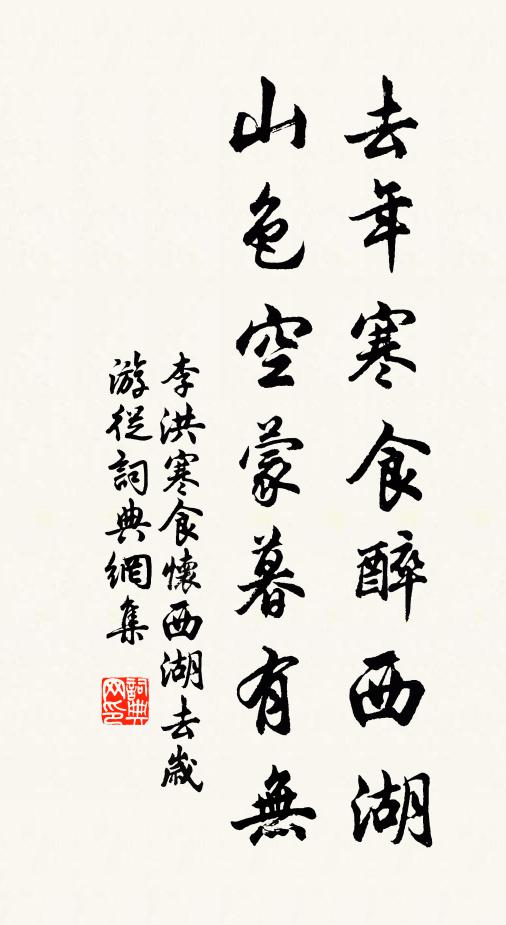 去年寒食醉西湖
山色空蒙暮有無
李洪寒食懷西湖去歲
游從詞典網集
詞典網印